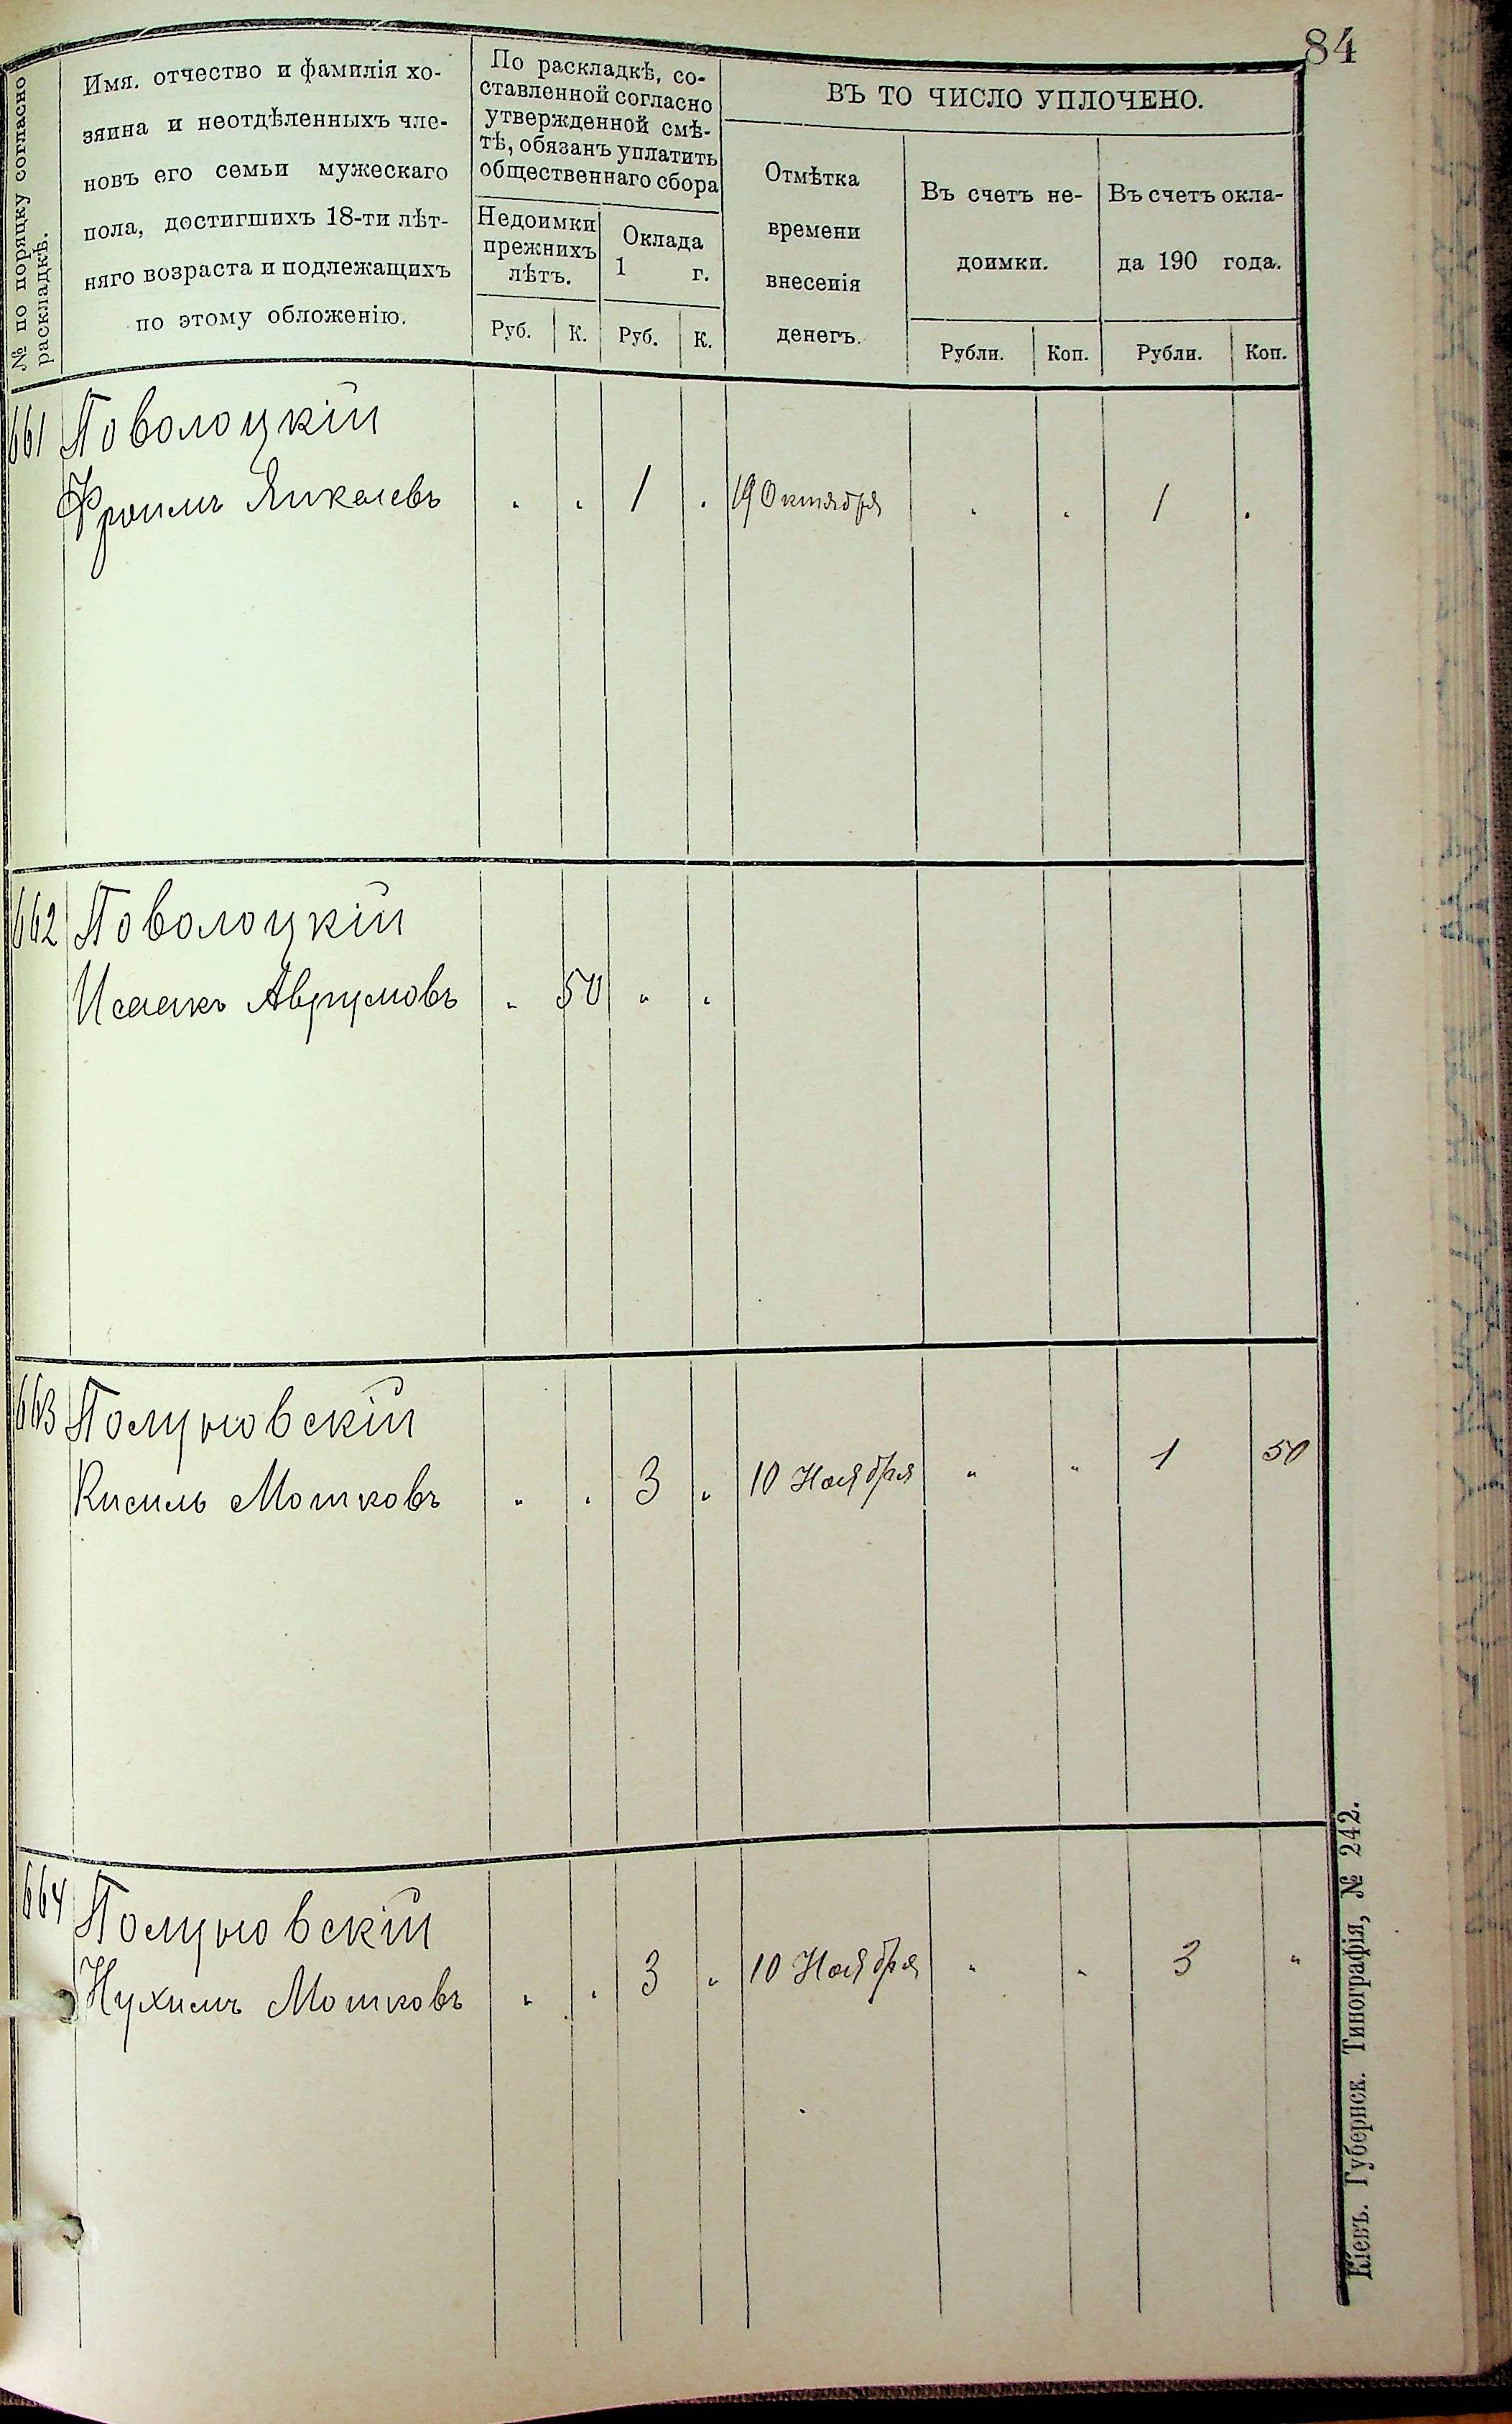 84
№ по порядку согласно
раскладкѣ.
Имя. отчество и фамилія хо-
зяина и неотдѣленныхъ чле-
новъ его семьи мужескаго
пола, достигшихъ 18-ти лѣт-
няго возраста и подлежащихъ
по этому обложенію.
По раскладкѣ, со-
ставленной согласно
утвержденной смѣ-
тѣ, обязанъ уплатить
общественнаго сбора
Недоимки
прежнихъ
лѣтъ.
Руб. К.
Оклада
1 г.
Руб. К.
ВЪ ТО ЧИСЛО УПЛОЧЕНО.
Отмѣтка
времени
внесенія
денегъ.
Въ счетъ не-
доимки.
Рубли. Коп.
Въ счетъ окла-
да 190 года.
Рубли. Коп.
661 Поволоцкій
Фроимъ Янкелевъ " " 1 " 19 Октября " " 1 "
662 Поволоцкій
Исаакъ Аврумовъ " 50 " "
663 Полуновскій
Кисиль Мошковъ " " 3 " 10 Ноября " " 1 50
664 Полуновскій
Нухимъ Мошковъ " " 3 " 10 Ноября " " 3 "
Кіевъ. Губернск. Типографія, № 242.